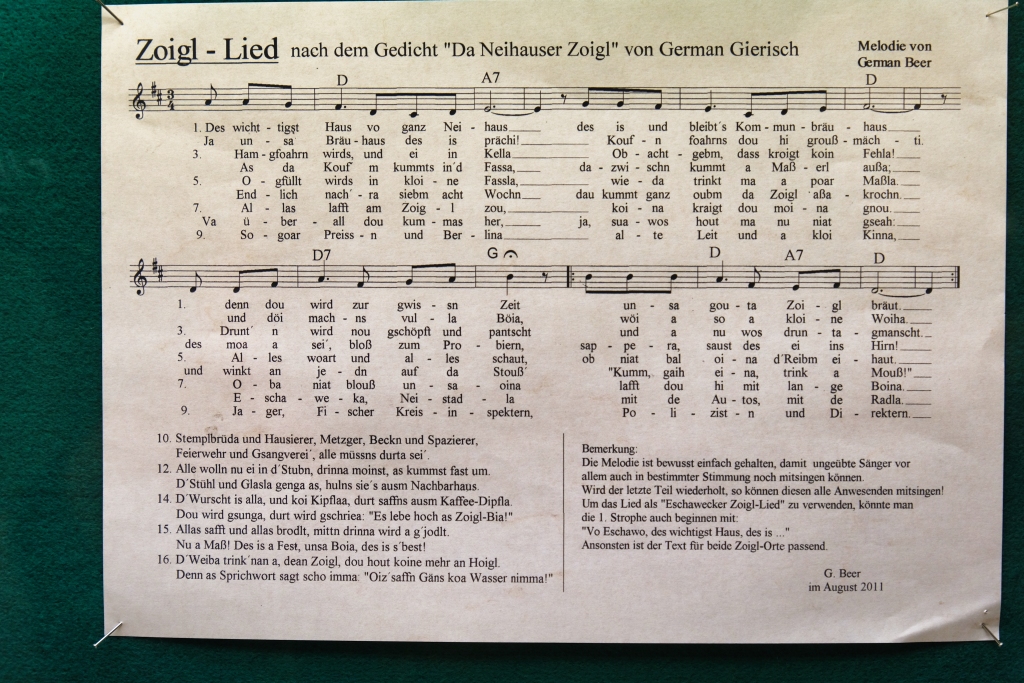 Zoigl - Lied nach dem Gedicht "Da Neihauser Zoigl" von German Gierisch
Melodie von
German Beer
D A7 D
3/4
1. Des wicht - tigst Haus vo ganz Nei - haus____ des is und bleibt´s Kom - mun - bräu - haus____
Ja un - sa´ Bräu - haus des is prächi!____ Kouf - n foahrns dou hi grouß - mäch - ti.
3. Ham - gfoahrn wirds, und ei in Kella____ Ob - acht - gebm, dass kroigt koin Fehla!____
As da Kouf m kummts in´d Fassa,____ da - zwi - schn kummt a Maß - erl außa;____
5. O - gfüllt wirds in kloi - ne Fassla,____ wie - da trinkt ma a poar Maßla.____
End - lich nach´ - ra siebm acht Wochn____ dau kummt ganz oubm da Zoigl´aßa - krochn.____
7. Al - las lafft am Zoig - l zou,____ koi - na kraigt dou moi - na gnou.____
Va ü - ber - all dou kum - mas her,____ ja, sua - wos hout ma nu niat gseah:____
9. So - goar Preiss - n und Ber - lina____ al - te Leit und a kloi Kinna,____
D7 G D A7 D
1. denn dou wird zur gwis - sn Zeit un - sa gou - ta Zoi - gl bräut.____
und döi mach - ns vul - la Böia, wöi a so a kloi - ne Woiha.____
3. Drunt´ n wird nou gschöpft und pantscht und a nu wos drun - ta - gmanscht.____
des moa a sei´, bloß zum Pro - biern, sap - pe - ra, saust des ei ins Hirn!____
5. Al - les woart und al - les schaut, ob niat bal oi - na d´Reibm ei - haut.____
und winkt an je - dn auf da Stouß´ "Kumm, gaih ei - na, trink a Mouß!"____
7. O - ba niat blouß un - sa - oina lafft dou hi mit lan - ge Boina.____
E - scha - we - ka, Nei - stad - la mit de Au - tos, mit de Radla.____
9. Ja - ger, Fi - scher Kreis - in - spektern, Po - li - zist - n und Di - rektern.____
10. Stemplbrüda und Hausierer, Metzger, Beckn und Spazierer,
Feierwehr und Gsangverei´, alle müssns durta sei´.
12. Alle wolln nu ei in d´Stubn, drinna moinst, as kummst fast um.
D´Stühl und Glasla genga as, hulns sie´s ausm Nachbarhaus.
14. D´Wurscht is alla, und koi Kipflaa, durt saffns ausm Kaffee-Dipfla.
Dou wird gsunga, durt wird gschriea: "Es lebe hoch as Zoigl-Bia!"
15. Allas safft und allas brodlt, mittn drinna wird a g´jodlt.
Nu a Maß! Des is a Fest, unsa Boia, des is s´best!
16. D´Weiba trink´nan a, dean Zoigl, dou hout koine mehr an Hoigl.
Denn as Sprichwort sagt scho imma: "Oiz´saffn Gäns koa Wasser nimma!"
Bemerkung:
Die Melodie ist bewusst einfach gehalten, damit ungeübte Sänger vor
allem auch in bestimmter Stimmung noch mitsingen können.
Wird der letzte Teil wiederholt, so können diesen alle Anwesenden mitsingen!
Um das Lied als "Eschawecker Zoigl-Lied" zu verwenden, könnte man
die 1. Strophe auch beginnen mit:
"Vo Eschawo, des wichtigst Haus, des is ..."
Ansonsten ist der Text für beide Zoigl-Orte passend.
G. Beer
im August 2011